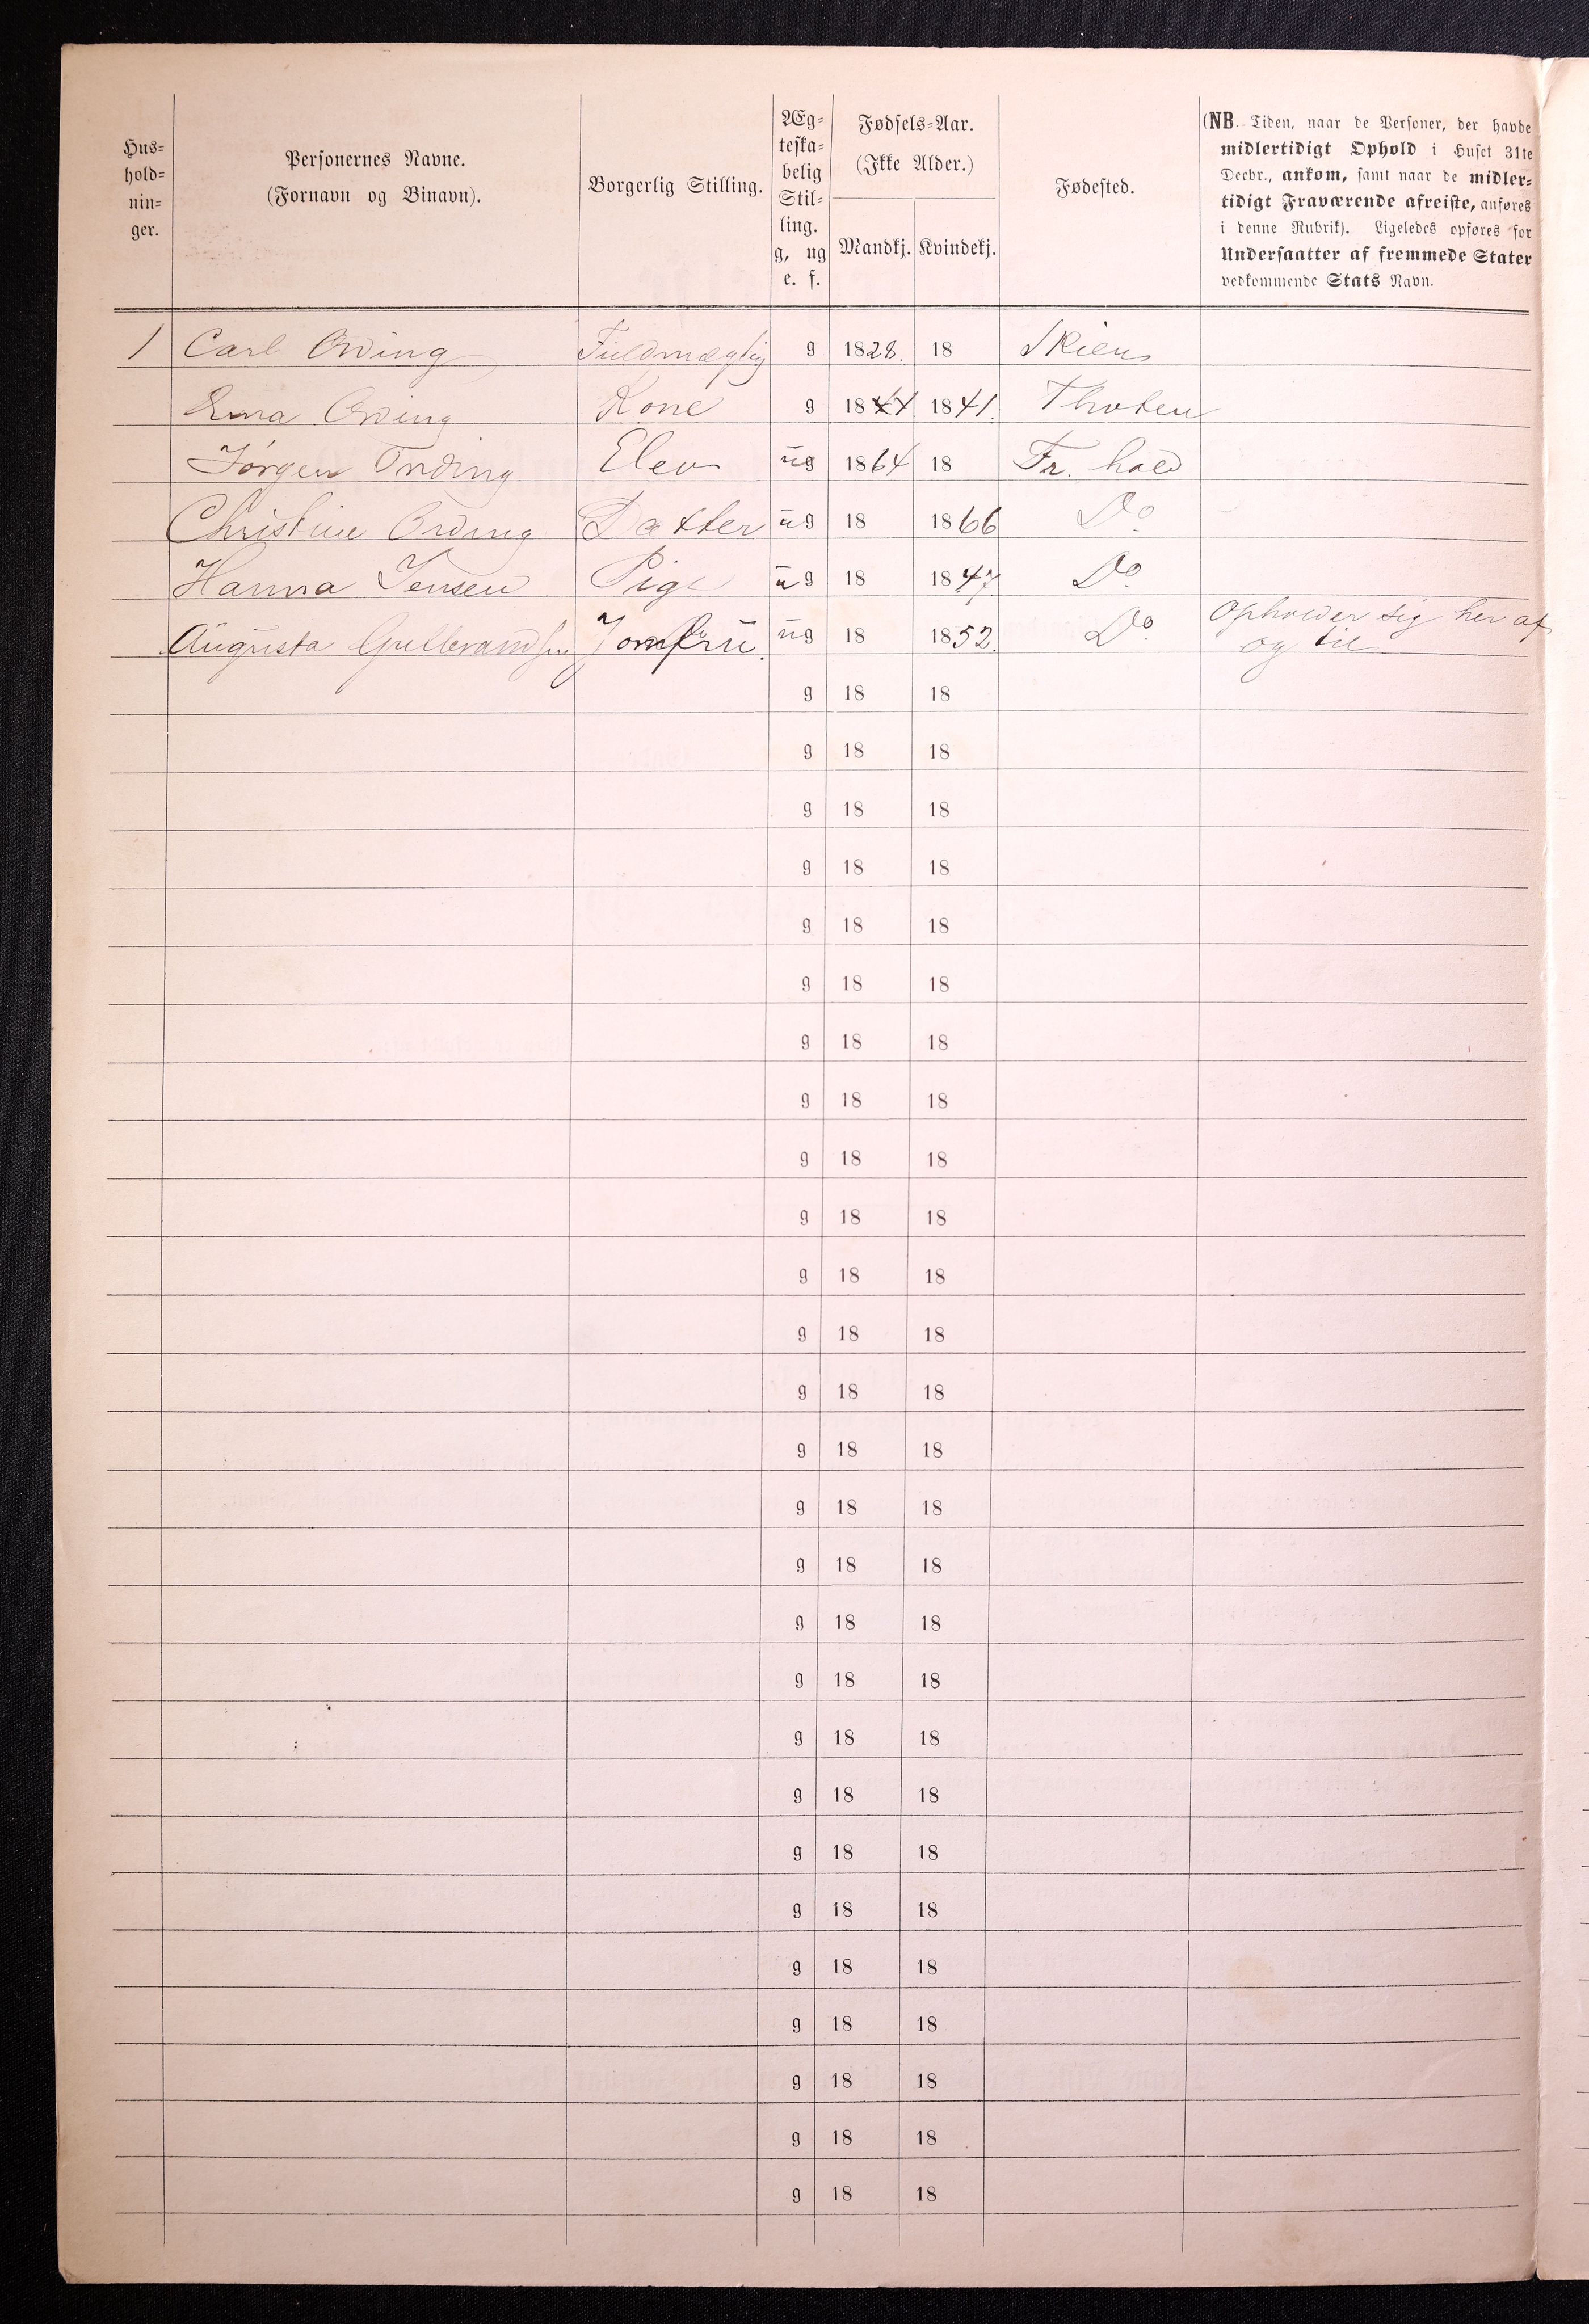 Hus-
hold-
nin-
ger.
Personernes Navne.
(Fornavn og Binavn).
Borgerlig Stilling.
Æg-
teska-
belig
Stil-
ling.
g, ug
e. f.
Fødsels-Aar.
(Ikke Alder.)
Mandkj. Kvindekj.
Fødested.
(NB. Tiden, naar de Personer, der havde
midlertidigt Ophold i Huset 31te
Decbr., ankom, samt naar de midler-
tidigt Fraværende afreiste, anføres
i denne Rubrik). Ligeledes opføres for
Undersaatter af fremmede Stater
vedkommende Stats Navn.
1 Carl Ording Fuldmægtig g 1828. 18 Skien
Ording Kone g 18 1841. Thoten
Jørgen Ording Elev ug 1864 18 Fr. hald
Christine Ording Datter ug 18 1866 Do
Hanna Jensen Pige ug 18 1847 Do
Augusta Gulbrandsen Jomfru. ug 18 1852. Do Opholder sig her af
og til
g 18 18
g 18 18
g 18 18
g 18 18
g 18 18
g 18 18
g 18 18
g 18 18
g 18 18
g 18 18
g 18 18
g 18 18
g 18 18
g 18 18
g 18 18
g 18 18
g 18 18
g 18 18
g 18 18
g 18 18
g 18 18
g 18 18
g 18 18
g 18 18
g 18 18
g 18 18
g 18 18